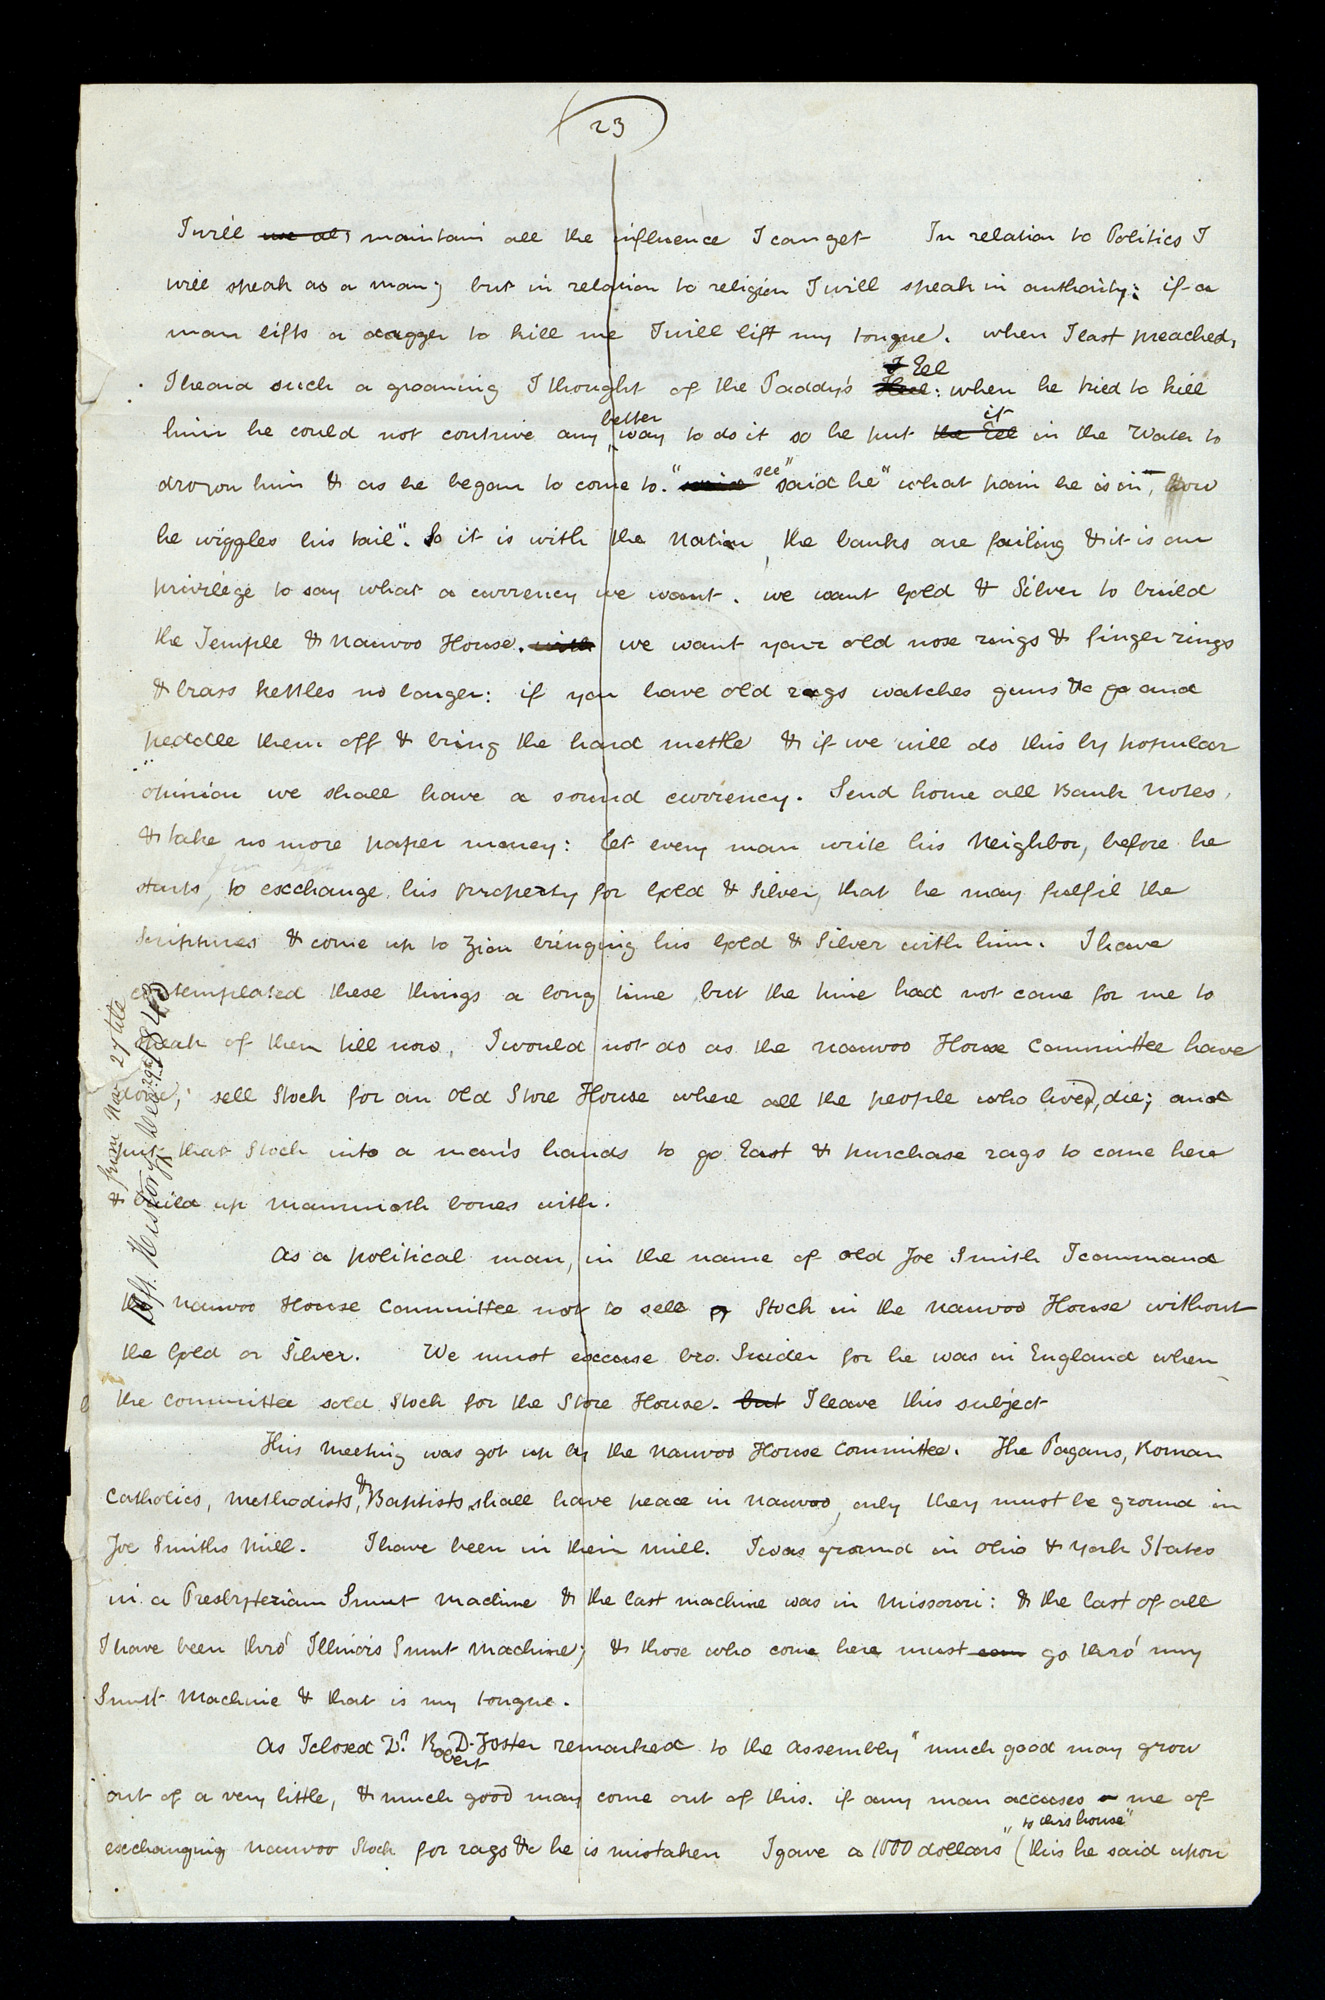 23
I will use al maintain all the influence I can get In relation to Politics I
will speak as a man; but in relation to religion I will speak in authority: if a
man lifts a dagger to kill me I will lift my tongue. when I last preached,
I heard such a groaning I thought of the Paddy's Heel I Eel: when he tried to kill
him he could not contrive any better way to do it so he put the Eel it in the Water to
drown him & as he began to come to. "see" said he "what pain he is in, how
he wiggles his tail". So it is with the Nation, the banks are failing & it is our
privilege to say what a currency we want. we want Gold & Silver to build
the Temple & Nauvoo House. with we want your old nose rings & finger rings
& brass kettles no longer: if you have old rags watches guns &c go and
peddle them off & bring the hard mettle & if we will do this by popular
opinion we shall have a sound currency. Send home all Bank Notes,
& take no more paper money: let every man write his Neighbor, before he
starts, to exchange his property for Gold & Silver, that he may fulfil the
Scriptures & come up to Zion bringing his Gold & Silver with him. I have
contemplated these things a long time, but the time had not come for me to
speak of them till now. I would not do as the Nauvoo House Committee have
done, sell Stock for an old Store House where all the people who lived, die; and
put that Stock into a man's hands to go East & purchase rags to come here
& build up mammoth bones with.
As a political man, in the name of old Joe Smith I command
the Nauvoo House Committee not to sell Stock in the Nauvoo House without
the Gold or Silver. We must excuse bro. Snider for he was in England when
the Committee sold Stock for the Store House. but I leave this subject
This meeting was got up by the Nauvoo House Committee. The Pagans, Roman
Catholics, Methodists, & Baptists shall have peace in Nauvoo, only they must be ground in
Joe Smiths Mill. I have been in their mill. I was ground in Ohio & York States
in a Presbyterian Smut Machine & the last machine was in Missouri: & the last of all
I have been thro' Illinois Smut Machine; & those who come here must com go thro' my
Smutt Machine & that is my tongue.
As I closed Dr. Robert D. Foster remarked to the assembly "much good may grow
out of a very little, & much good may come out of this. if any man accuses me of
exchanging Nauvoo Stock for rags &c he is mistaken I gave a 1000 dollars "to this house" (this he said upon
Mss. History February 1843
from Nov 27 till